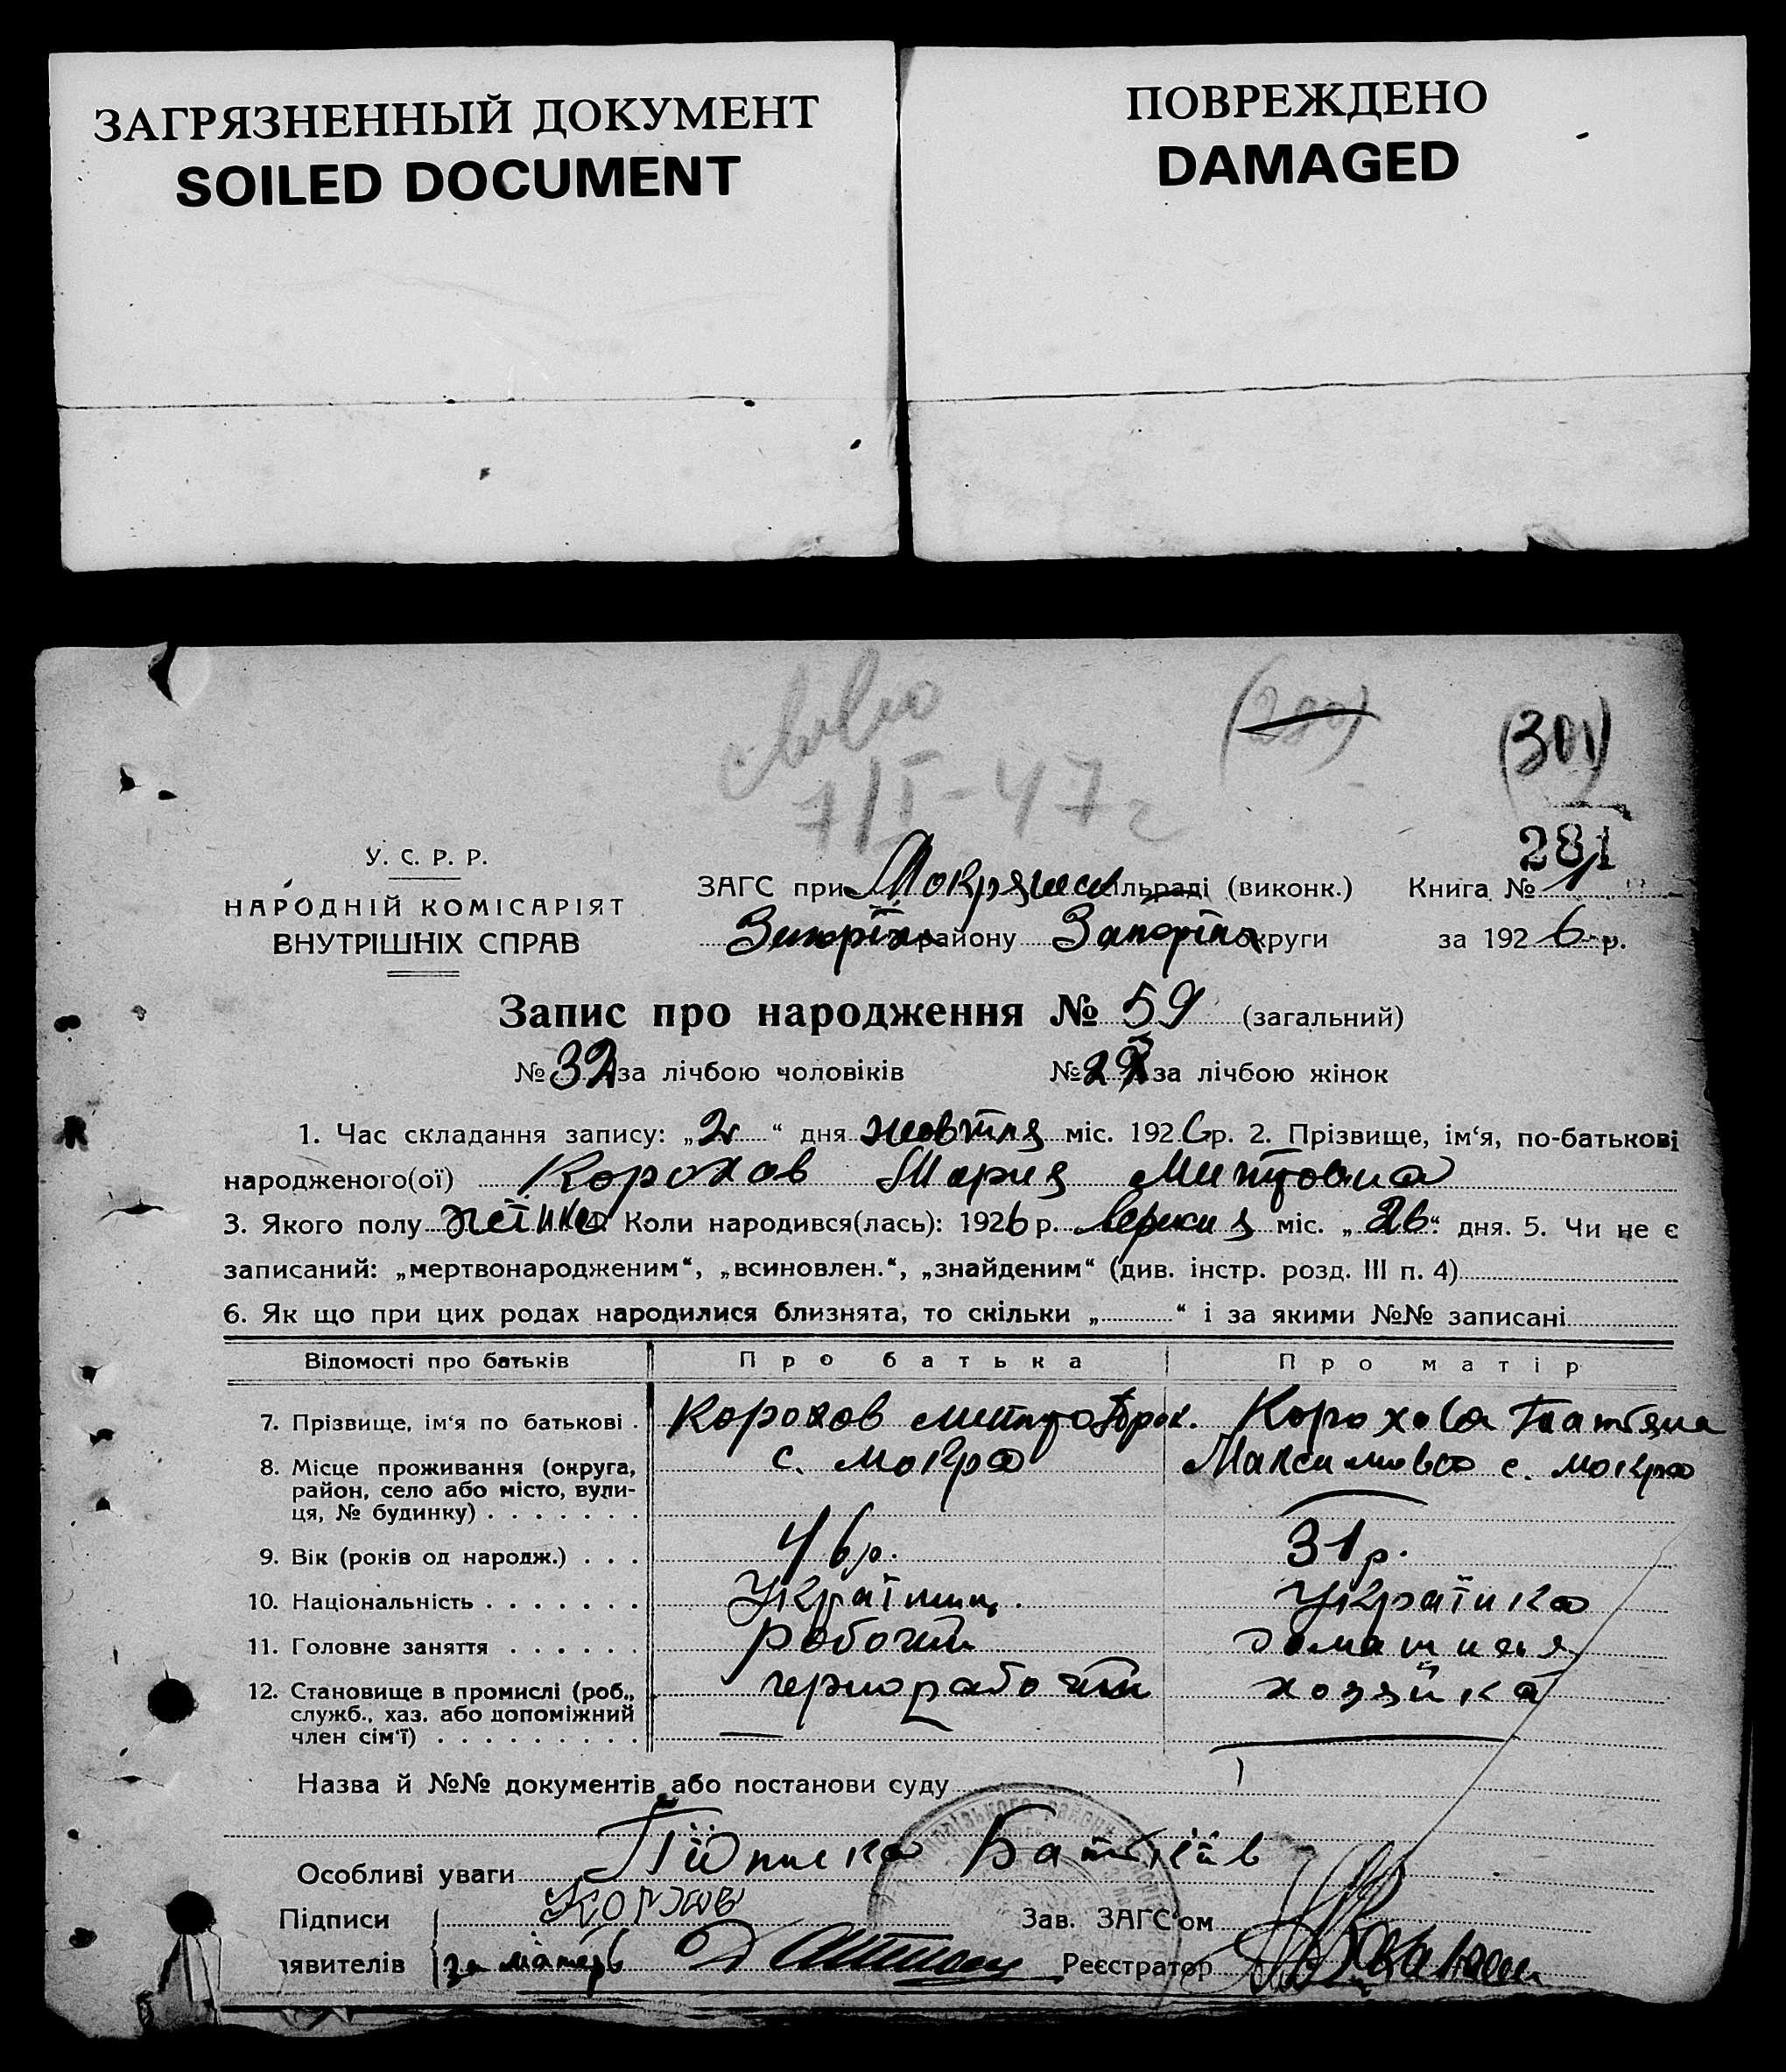 ЗАГРЯЗНЕННЫЙ ДОКУМЕНТ
SOILED DOCUMENT
ПОВРЕЖДЕНО
DAMAGED
(301)
7/I-47г
281
У. С. Р. Р.
НАРОДНІЙ КОМІСАРІЯТ
ВНУТРІШНІХ СПРАВ
ЗАГС при льраді (виконк.) Книга № 1
району округи за 1926 р.
Запис про народження № 59 (загальний)
№ 32 за лічбою чоловіків № за лічбою жінок
1. Час складання запису: „2“ дня жовтня міс. 1926р. 2. Прізвище, ім‘я, по-батькові
народженого(ої) Корохов Мария
3. Якого полу жінка Коли народився(лась): 1926 р. міс. „26“ дня. 5. Чи не є
записаний: „мертвонародженим“, „всиновлен.“, „знайденим“ (див. інстр. розд. III п. 4)
6. Як що при цих родах народилися близнята, то скільки „ “ і за якими №№ записані
Відомості про батьків Про батька Про матір
7. Прізвище, ім‘я по батькові . Корохов Корохова Татяна
8. Місце проживання (округа, с. Мокра с. Мокра
район, село або місто, вули-
ця, № будинку) . . . . . . .
9. Вік (років од народж.) . . . 46р. 31р.
10. Національність . . . . . . . Українец. Українка
11. Головне заняття . . . . . . робочий домашня
12. Становище в промислі (роб., чернорабочий хозяйка
служб., хаз. або допоміжний
член сім‘ї) . . . . . . . . .
Назва й №№ документів або постанови суду
Особливі уваги Підписка Батьків
Підписи Зав. ЗАГС‘ом
явителів за матерь Реєстратор